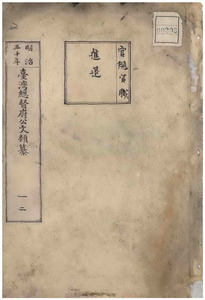 官規官職
進退
明治
三十年
臺灣總督府公文類纂
一二